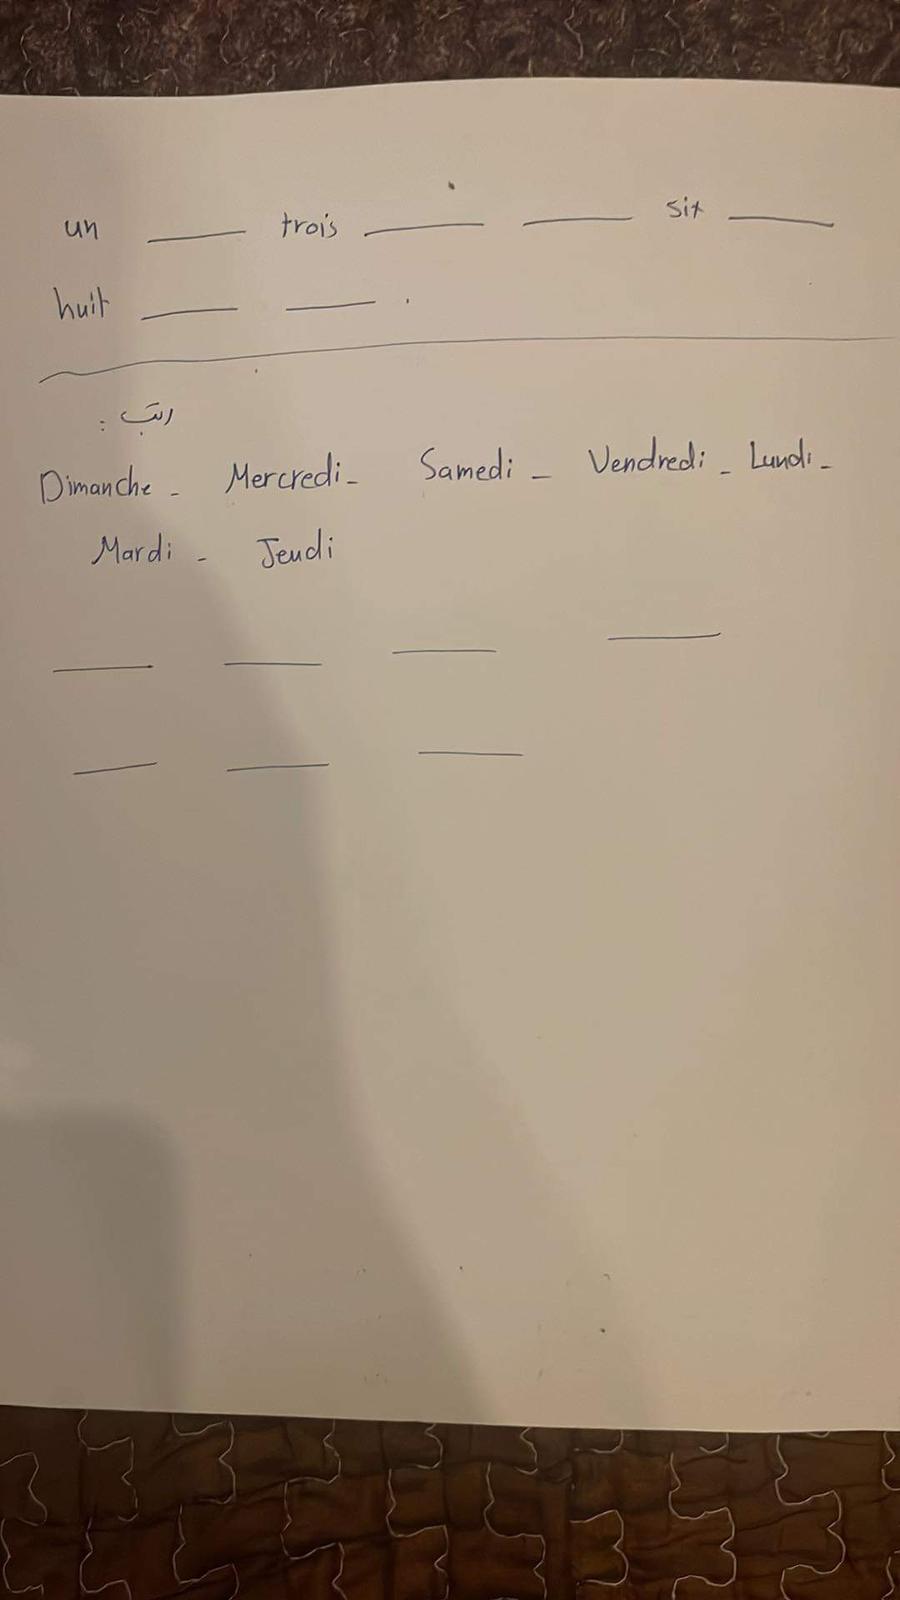 un ____ trois ____ ____ six ____
huit ____ ____ .
رتب :
Dimanche - Mercredi - Samedi - Vendredi - Lundi -
Mardi - Jeudi
____ ____ ____ ____
____ ____ ____